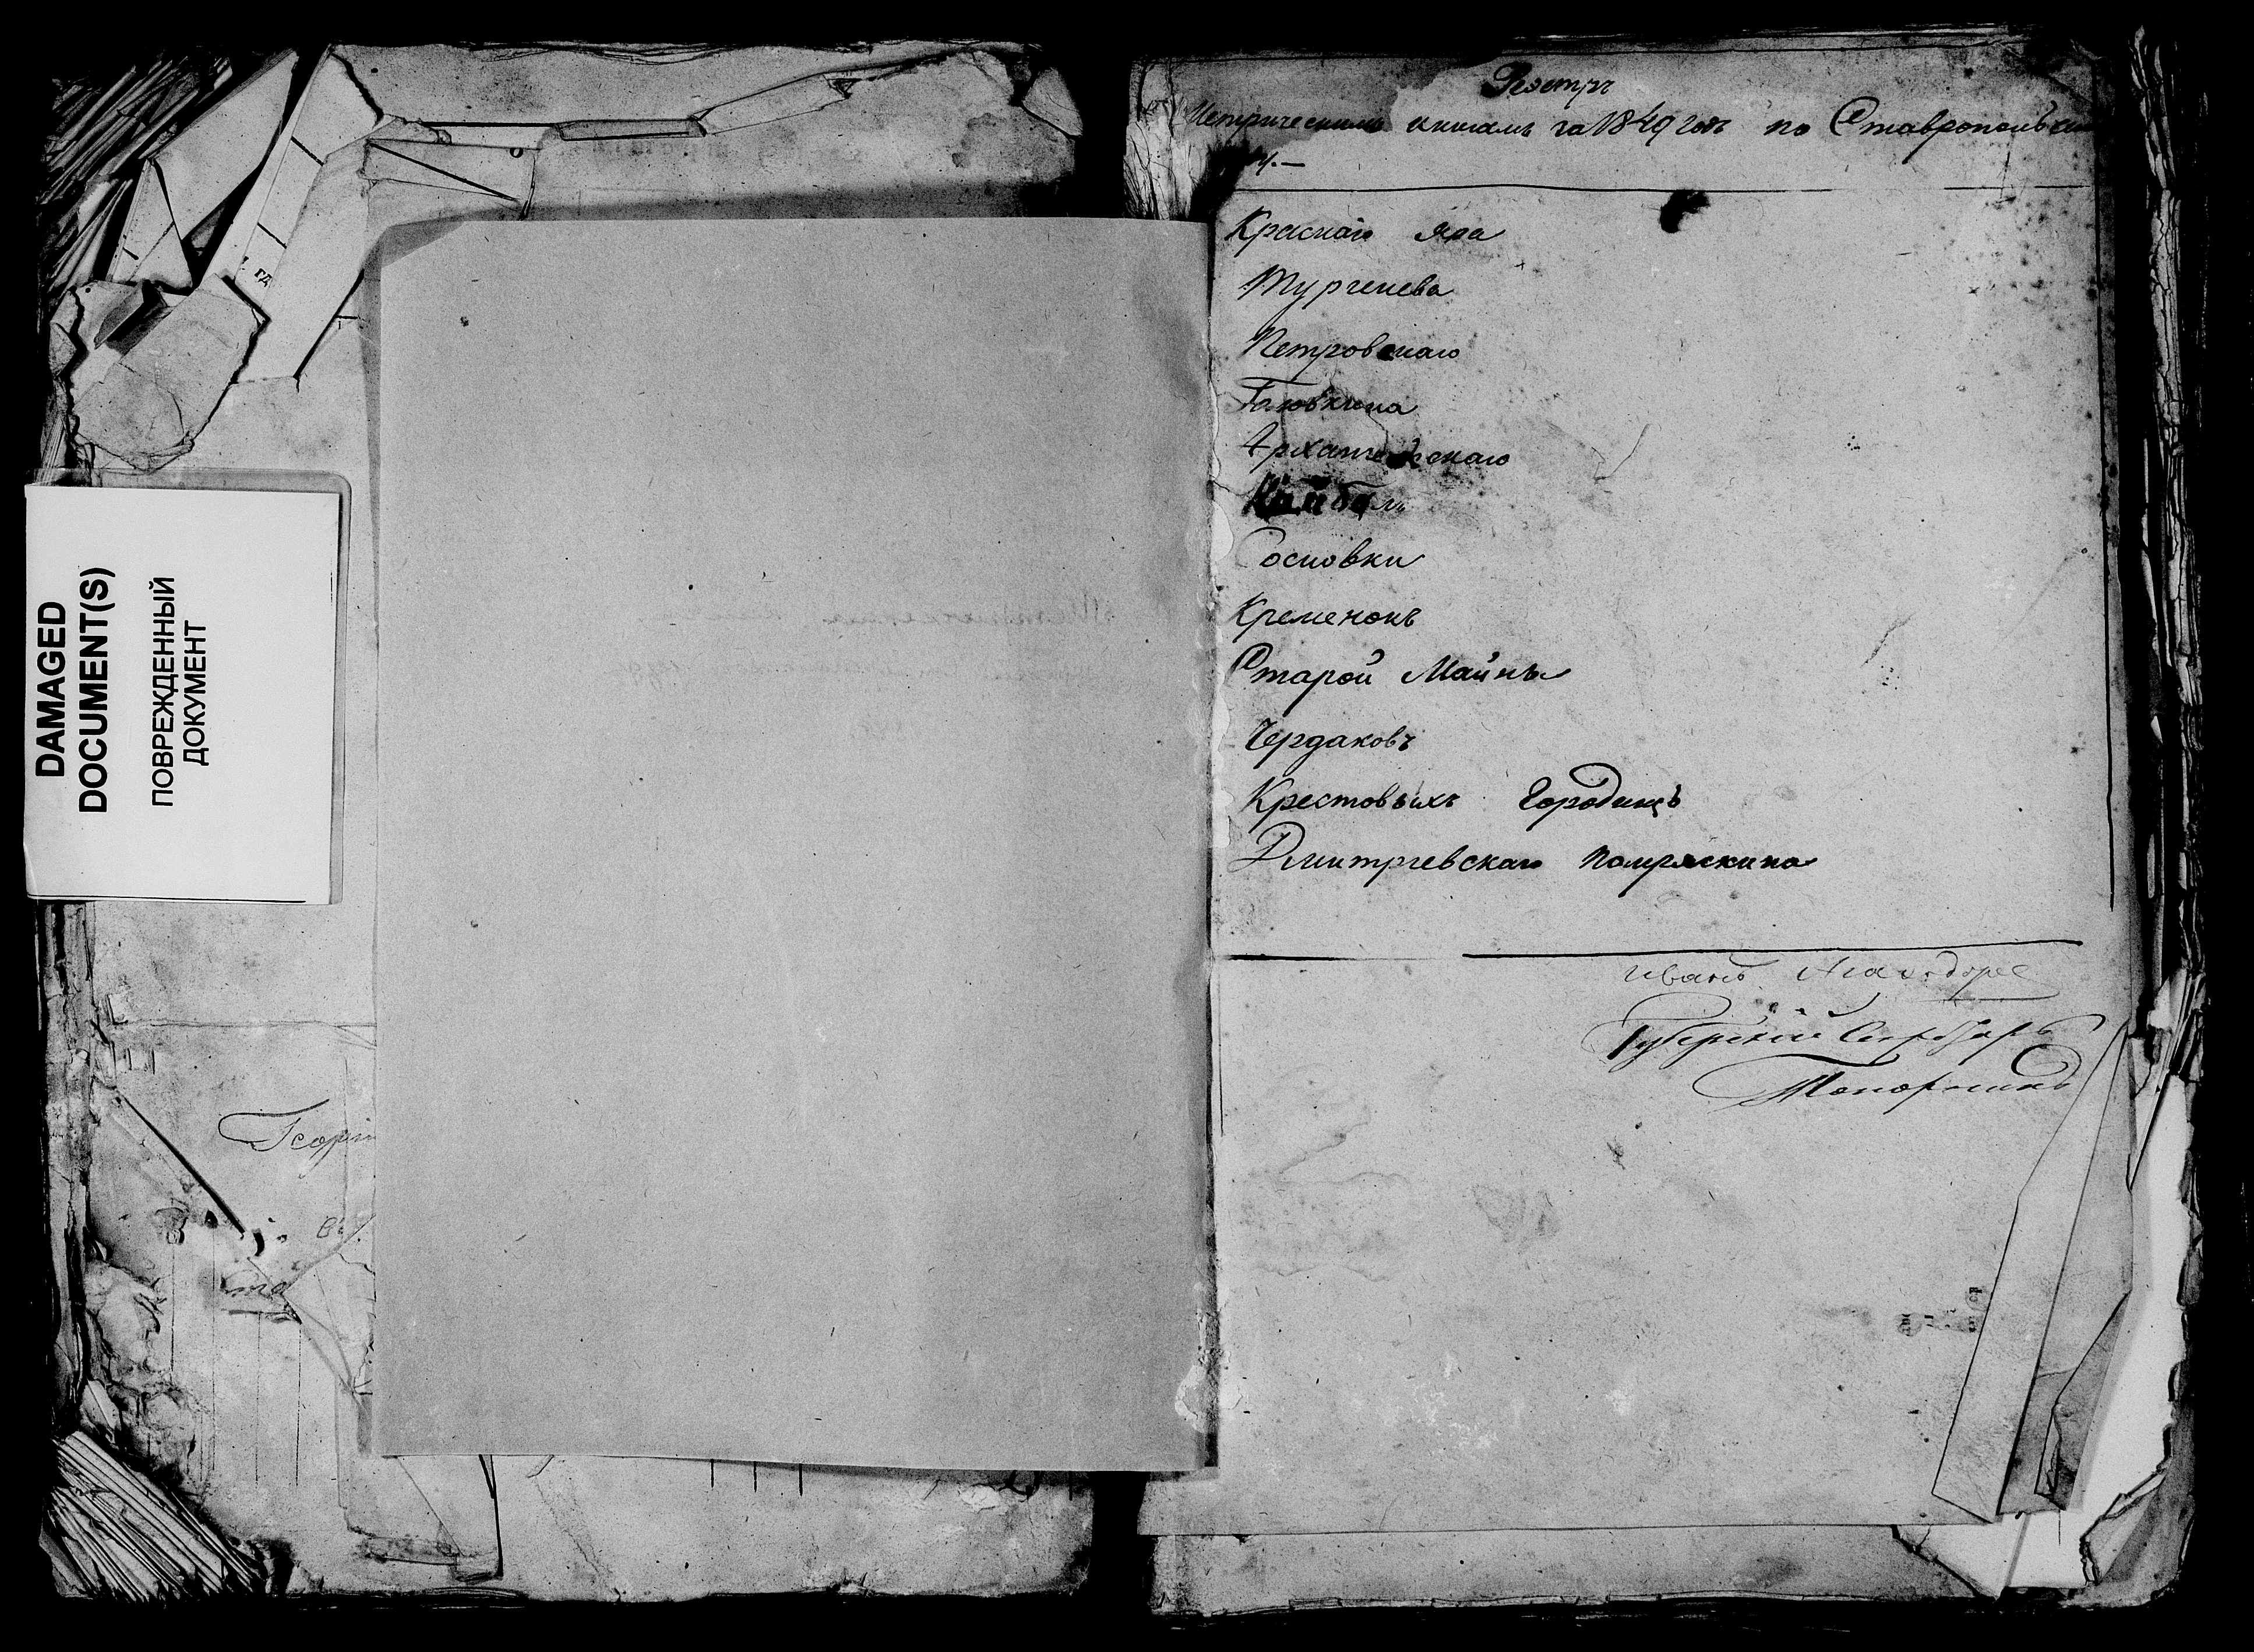 DAMAGED
DOCUMENT(S)
ПОВРЕЖДЕННЫЙ
ДОКУМЕНТ
Реэстръ
Метрическимъ книгамъ за 1849 годъ по Ставропольск
Краснаго Яра
Тургенева
Петровскаго
Головкина
Архангельскаго
Кайбелъ
Сосновки
Кременокъ
Старой Майны
Чердаковъ
Крестовыхъ Городищъ
Дмитріевскаго Помряскина
Иванъ
Губернскій Секретарь
Топорнинъ
Георгі